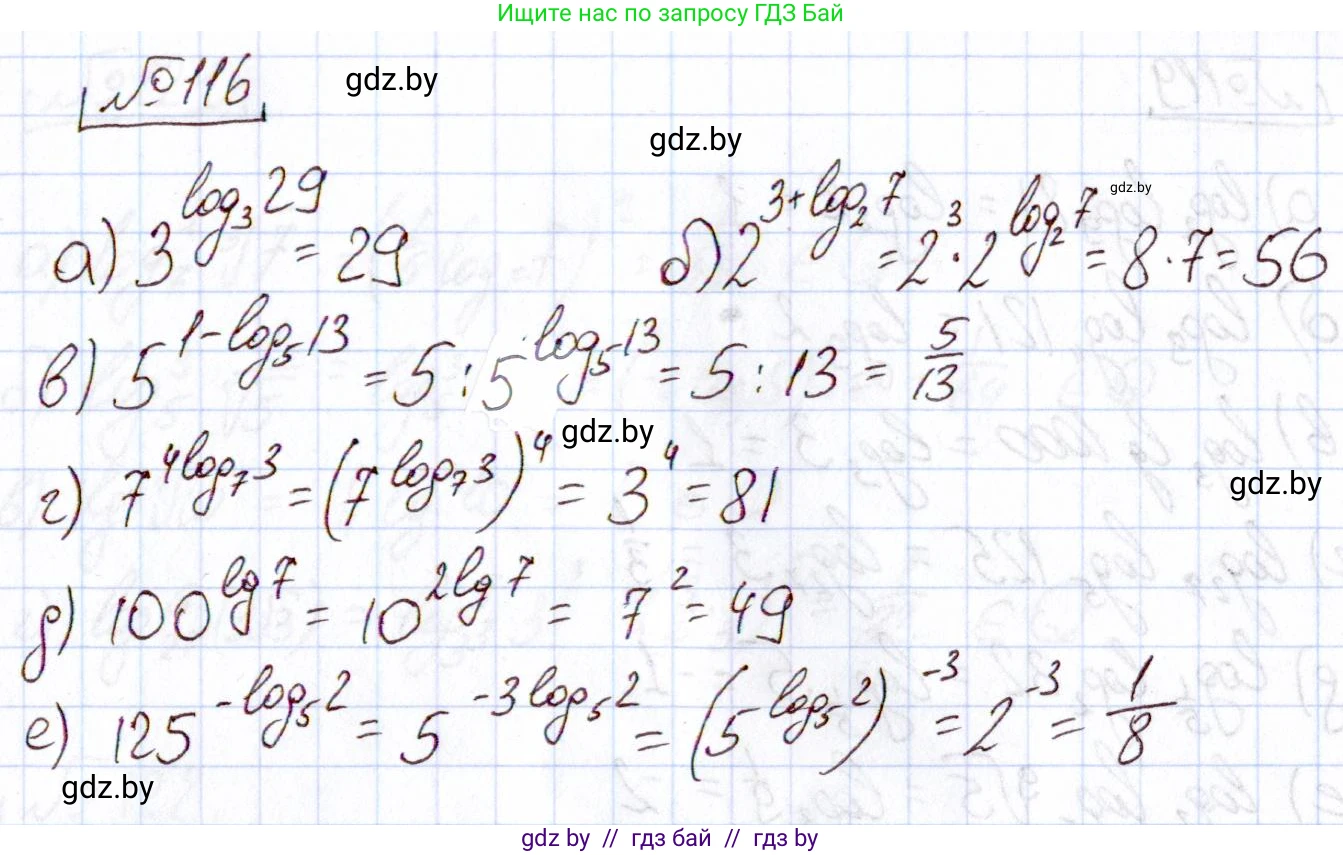 Ищите нас по запросу ГДЗ Бай
№116 gdz.by
gdz.by
а) 3^{log_3 29} = 29 б) 2^{3+log_2 7} = 2^3 · 2^{log_2 7} = 8 · 7 = 56 gdz.by
в) 5^{1-log_5 13} = 5 : 5^{log_5 13} = 5 : 13 = 5/13
gdz.by
г) 7^{4log_7 3} = (7^{log_7 3})^4 = 3^4 = 81 gdz.by
д) 100^{lg 7} = 10^{2lg 7} = 7^2 = 49
е) 125^{-log_5 2} = 5^{-3log_5 2} = (5^{log_5 2})^{-3} = 2^{-3} = 1/8
gdz.by
gdz by // гдз бай // гдз by